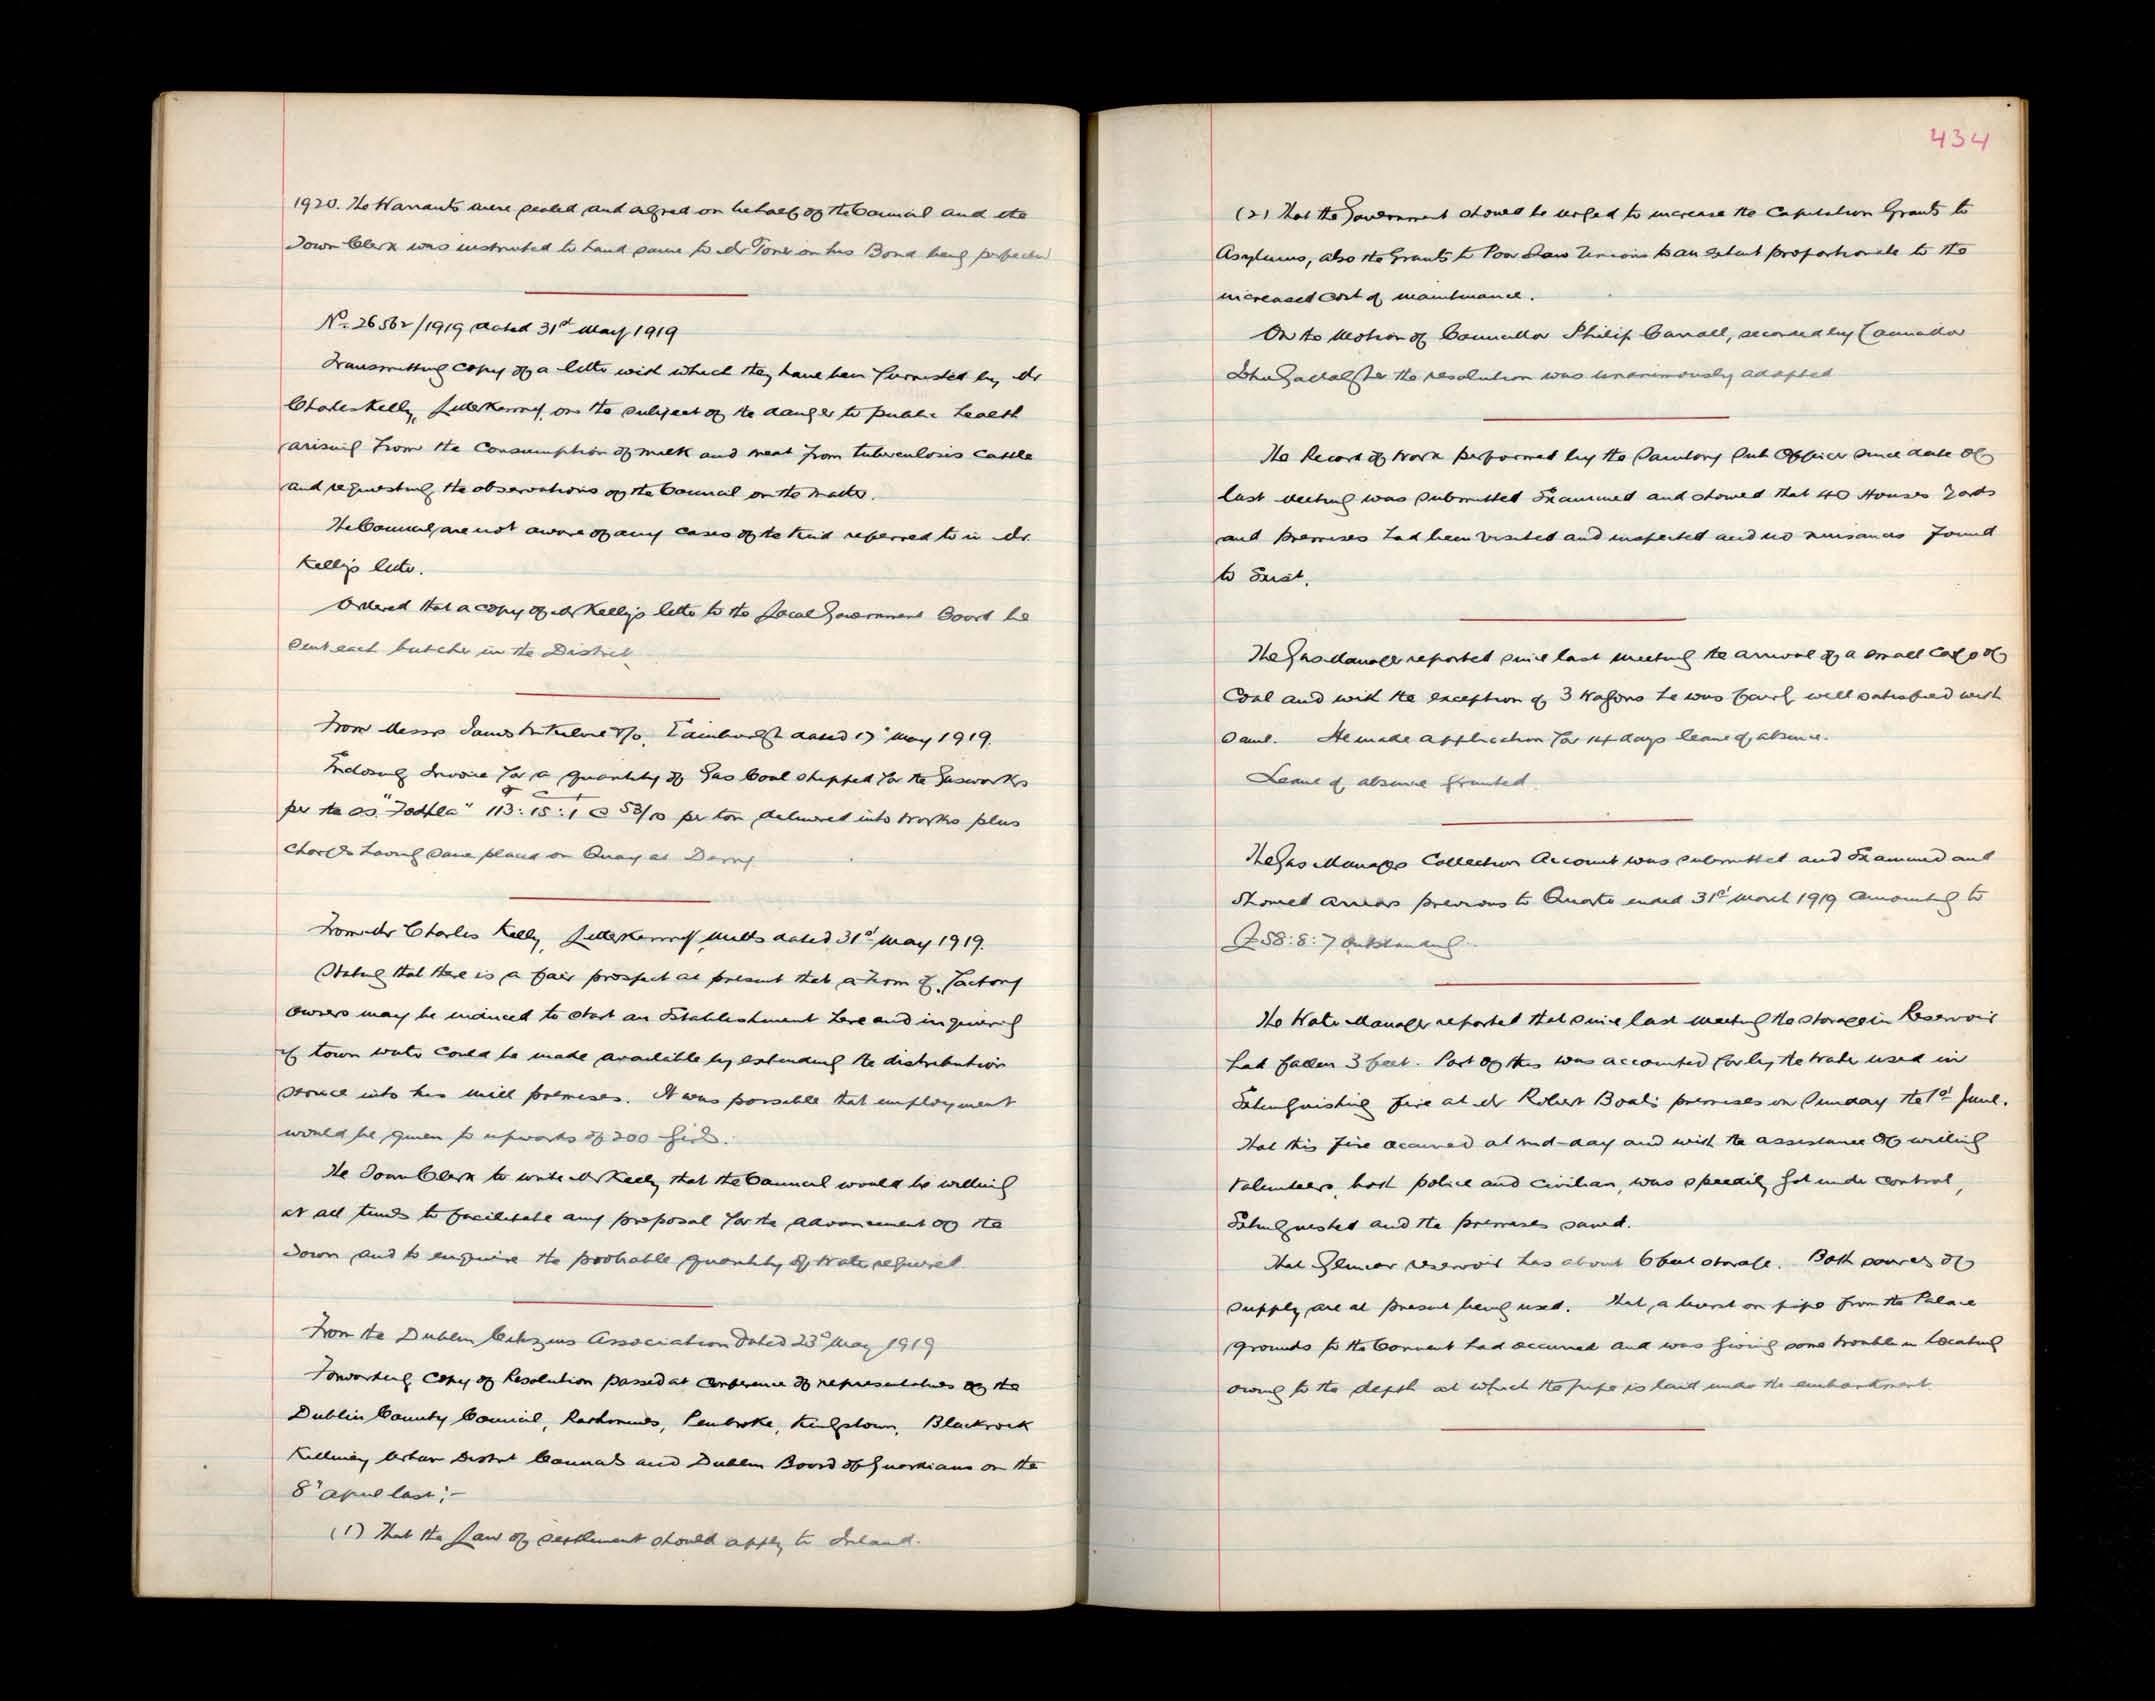 1920. The Warrants were sealed and signed on behalf of the Council and the
Town Clerk was instructed to hand same to Mr Toner on his Bond being perfected
No. 26562/1919 dated 31st May 1919
Transmitting copy of a letter with which they have been furnished by Mr
Charles Kelly, Letterkenny, on the subject of the danger to public health
arising from the consumption of milk and meat from tuberculosis cattle
and requesting the observations of the Council on the matter.
The Council are not aware of any cases of the kind referred to in Mr.
Kelly's letter.
Ordered that a copy of Mr Kelly's letter to the Local Government Board be
sent each butcher in the District
From Messrs James & Co, Edinburgh dated 17 May 1919.
Enclosing Invoice for a quantity of Gas Coal shipped for the Gasworks
per the ss. "Fodhla" 113:15:1 @ 53/10 per ton delivered into works plus
charges having same placed on Quay at Derry
From Mr Charles Kelly, Letterkenny Mills dated 31st May 1919.
Stating that there is a fair prospect at present that a Firm of Factory
owners may be induced to start an Establishment here and inquiring
if town water could be made available by extending the distribution
service into his mill premises. It was possible that employment
would be given to upwards of 200 girls.
The Town Clerk to write Mr Kelly that the Council would be willing
at all times to facilitate any proposal for the advancement of the
Town and to enquire the probable quantity of water required
From the Dublin Citizens Association Dated 23d May 1919
Forwarding copy of Resolution passed at Conference of representatives of the
Dublin County Council, Rathmines, Pembroke, Kingstown, Blackrock
Killiney Urban District Councils and Dublin Board of Guardians on the
8th April last:-
(1) That the Law of settlement should apply to Ireland.
434
(2) That the Government should be urged to increase the Capitation Grants to
Asylums, also the Grants to Poor Law Unions to an extent proportionate to the
increased cost of maintenance.
On the Motion of Councillor Philip Carroll, seconded by Councillor
John Gallagher the resolution was unanimously adopted
The Record of Work performed by the Sanitary Sub Officer since date of
last meeting was submitted Examined and showed that 40 Houses Yards
and premises had been visited and inspected and no nuisances found
to Exist.
The Gas Manager reported since last meeting the arrival of a small Cargo of
Coal and with the exception of 3 Wagons he was fairly well satisfied with
same. He made application for 14 days leave of absence.
Leave of absence granted.
The Gas Managers Collection Account was submitted and Examined and
showed arrears previous to Quarter ended 31st March 1919 amounting to
£58:8:7 outstanding.
The Water Manager reported that since last meeting the storage in Reservoir
had fallen 3 feet. Part of this was accounted for by the Water used in
Extinguishing fire at Mr Robert Boal's premises on Sunday the 1st June.
That this fire occurred at mid-day and with the assistance of willing
Volunteers, both police and civilian, was speedily got under control,
Extinguished and the premises saved.
That Glencar reservoir has about 6 feet storage. Both sources of
supply are at present being used. That a burst on pipe from the Palace
grounds to the Convent had occurred and was giving some trouble in locating
owing to the depth at which the pipe is laid under the embankment